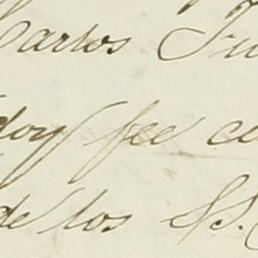 Carlos
doy fee
de los SS.